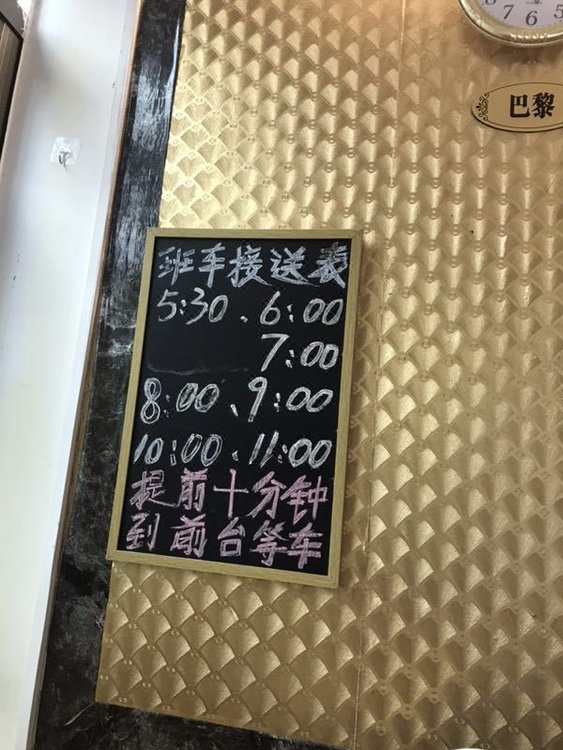 7 6 5
巴黎
班车接送表
5:30、6:00
7:00
8:00、9:00
10:00、11:00
提前十分钟
到前台等车